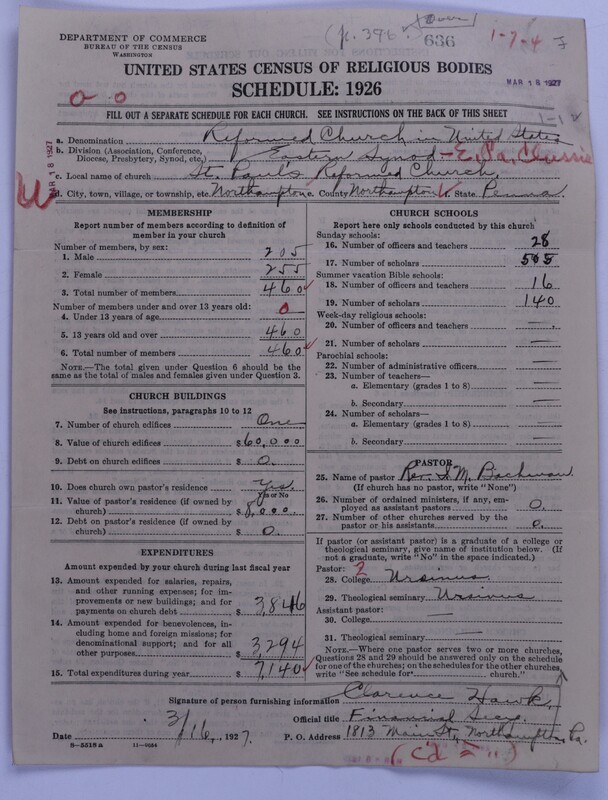 DEPARTMENT OF COMMERCE
BUREAU OF THE CENSUS
WASHINGTON
(p. 396
636
1-7-4
UNITED STATES CENSUS OF RELIGIOUS BODIES
SCHEDULE: 1926
MAR 18 1927
FILL OUT A SEPARATE SCHEDULE FOR EACH CHURCH. SEE INSTRUCTIONS ON THE BACK OF THIS SHEET
MAR 18 1927
a. Denomination Reformed Church in United States
b. Division (Association, Conference, Diocese, Presbytery, Synod, etc.) Eastern Synod - E. Pa. Classis
c. Local name of church St. Paul's Reformed Church.
d. City, town, village, or township, etc. Northampton e. County Northampton f. State Penna.
MEMBERSHIP
Report number of members according to definition of member in your church
Number of members, by sex:
1. Male 205
2. Female 255
3. Total number of members 460
Number of members under and over 13 years old:
4. Under 13 years of age 0
5. 13 years old and over 460
6. Total number of members 460
NOTE.—The total given under Question 6 should be the same as the total of males and females given under Question 3.
CHURCH BUILDINGS
See instructions, paragraphs 10 to 12
7. Number of church edifices One
8. Value of church edifices $60,000
9. Debt on church edifices $ 0.
10. Does church own pastor's residence? Yes.
Yes or No
11. Value of pastor's residence (if owned by church) $8,000.
12. Debt on pastor's residence (if owned by church) $ 0.
EXPENDITURES
Amount expended by your church during last fiscal year
13. Amount expended for salaries, repairs, and other running expenses; for improvements or new buildings; and for payments on church debt $ 3,846
14. Amount expended for benevolences, including home and foreign missions; for denominational support; and for all other purposes $ 3,294
15. Total expenditures during year $ 7,140
CHURCH SCHOOLS
Report here only schools conducted by this church
Sunday schools:
16. Number of officers and teachers 28
17. Number of scholars 565
Summer vacation Bible schools:
18. Number of officers and teachers 16
19. Number of scholars 140
Week-day religious schools:
20. Number of officers and teachers —
21. Number of scholars —
Parochial schools:
22. Number of administrative officers —
23. Number of teachers—
a. Elementary (grades 1 to 8) —
b. Secondary —
24. Number of scholars—
a. Elementary (grades 1 to 8) —
b. Secondary —
PASTOR
25. Name of pastor Rev. M. Bachman
(If church has no pastor, write "None")
26. Number of ordained ministers, if any, employed as assistant pastors 0.
27. Number of other churches served by the pastor or his assistants 0.
If pastor (or assistant pastor) is a graduate of a college or theological seminary, give name of institution below. (If not a graduate, write "No" in the space indicated.)
Pastor: 2
28. College Ursinus
29. Theological seminary Ursinus
Assistant pastor:
30. College —
31. Theological seminary —
NOTE.—Where one pastor serves two or more churches, Questions 28 and 29 should be answered only on the schedule for one of the churches; on the schedules for the other churches, write "See schedule for church."
Signature of person furnishing information Clarence Hawk,
Official title Financial Secy.
Date 3/16, 1927.
P. O. Address 1813 Main St, Northampton, Pa.
8-5518 A 11-9684